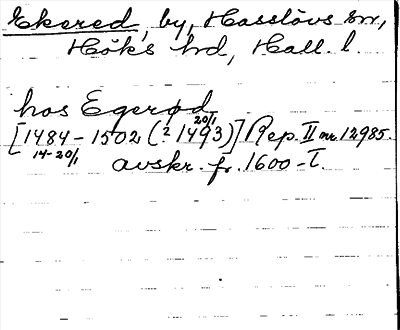 Ekered, by, Hasslövs sn,
Höks hd, Hall. l.
hos Egerød
20/1
[1484-1502 (? 1493)] Rep. II nr 12985.
14-20/1
avskr. fr. 1600-t.